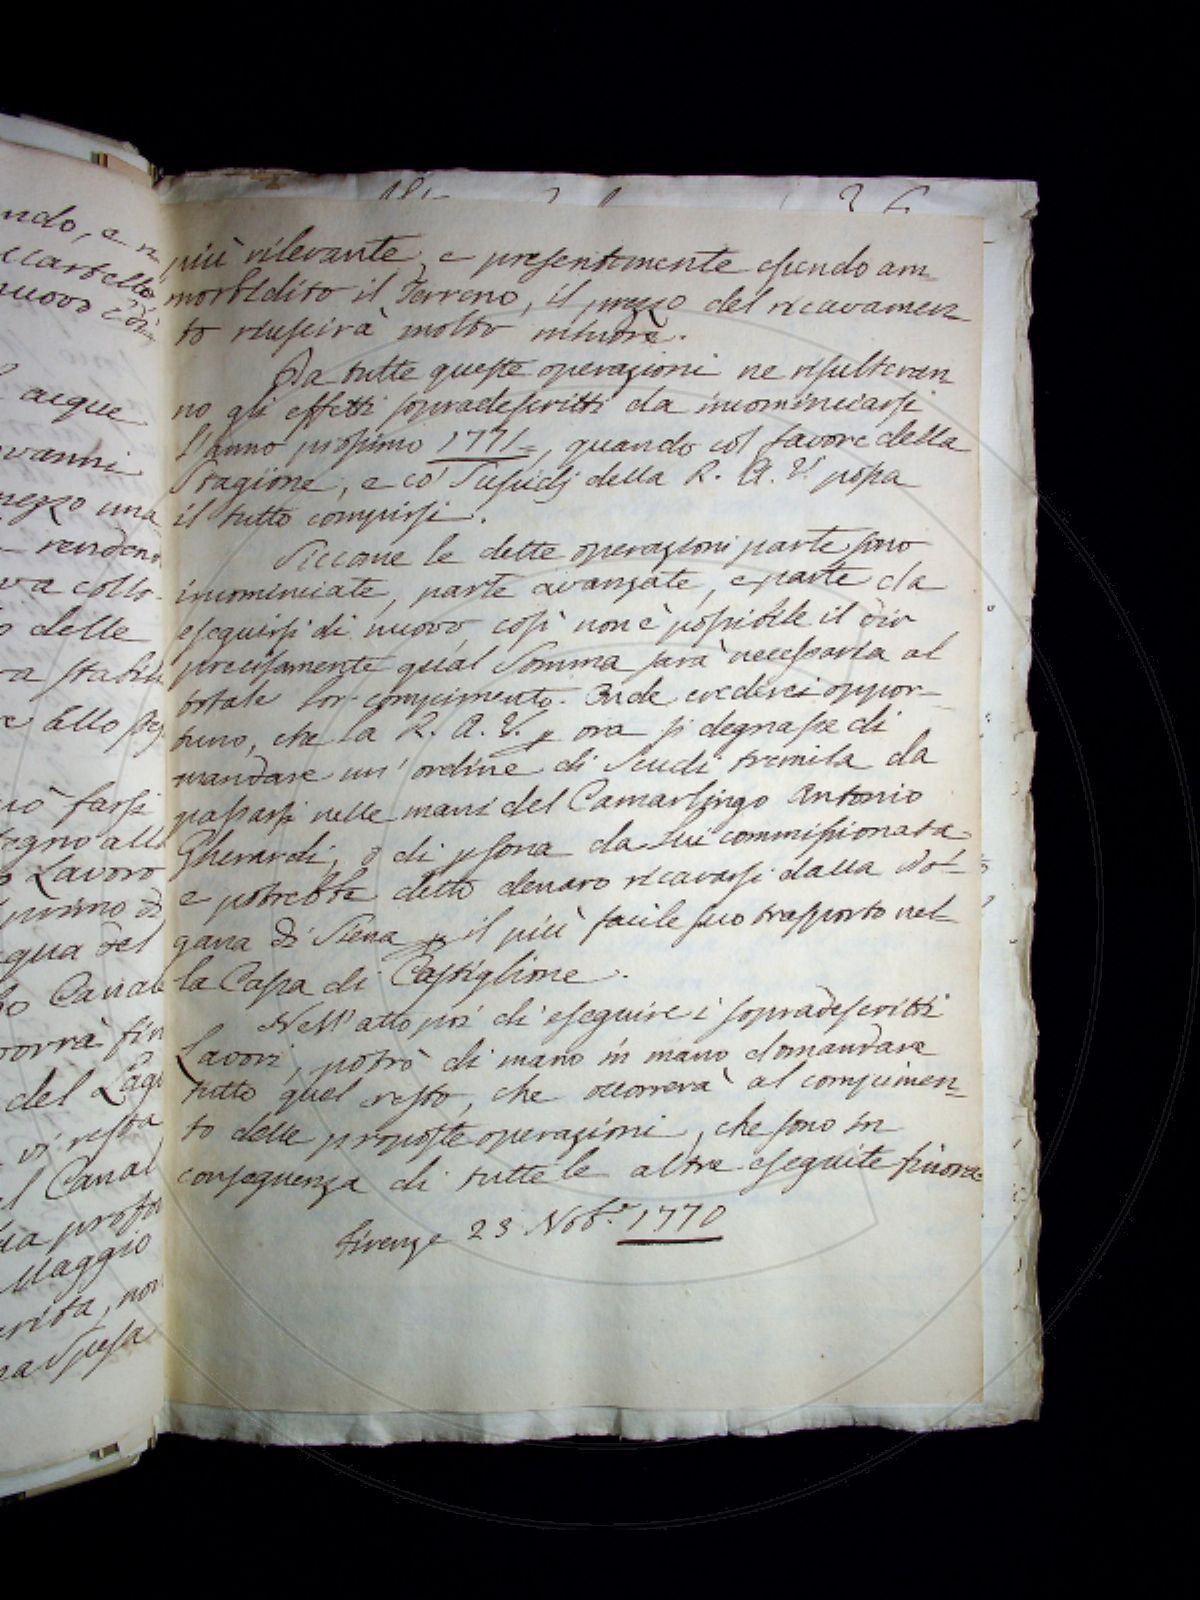 più rilevante, e presentemente essendo am=
morbidito il Terreno, il prezzo del ricavamen=
to riuscirà molto minore.
Da tutte queste operazioni ne risulteran
no gli effetti sopradescritti da incominciarsi
l'anno prossimo 1771=, quando col favore della
Stagione, e co' Sussidj della R. A. V. possa
il tutto compirsi.
Siccome le dette operazioni parte sono
incominciate, parte avanzate, e parte da
eseguirsi di nuovo, così non è possibile il dir
precisamente qual Somma sarà necessaria al
totale lor compimento. Onde crederei oppor=
tuno, che la R. A. V. p ora si degnasse di
mandare un' ordine di Scudi tremila da
passarsi nelle mani del Camarlingo Antonio
Gherardi, o di psona da Lui commissionata
e potrebbe detto denaro ricavarsi dalla Do=
gana di Siena p il più facile suo trasporto nel=
la Cassa di Castiglione.
Nell' atto poi di eseguire i sopradescritti
Lavori, potrò di mano in mano domandare
tutto quel resto, che occorrerà al compimen=
to delle proposte operazioni, che sono in
conseguenza di tutte le altre eseguite finora
Firenze 23 Nob.e 1770
ndo, e
nuovo
acque
ovanni
mezzo una
rendono
va collo-
o delle
ra stabili
e allo
uò farsi
tegno all
o Lavoro
primo di
qua del
o Canale
orrà fin
del Lago
vi resta
el Canal
ia profon
Maggio
erita, non
na Spesa